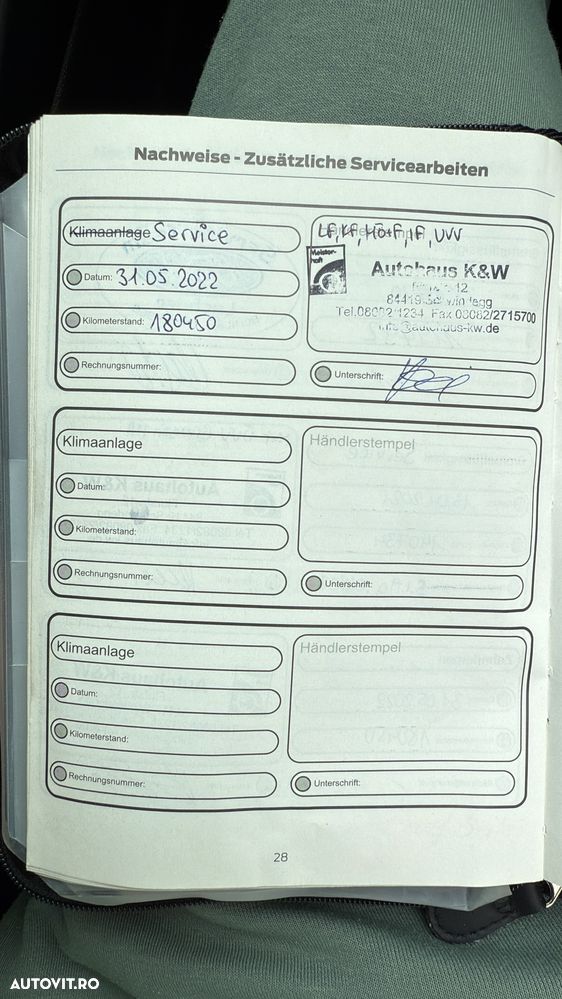 Nachweise - Zusätzliche Servicearbeiten
Klimaanlage Service
Datum: 31.05.2022
Kilometerstand: 180450
Rechnungsnummer:
LF, KF, HÖ+F, IF, UVV
Meister-
haft
Autohaus K&W
12
84419
Tel.08082/1234 Fax 08082/2715700
info@autohaus-kw.de
Unterschrift:
Klimaanlage
Datum:
Kilometerstand:
Rechnungsnummer:
Händlerstempel
Unterschrift:
Klimaanlage
Datum:
Kilometerstand:
Rechnungsnummer:
Händlerstempel
Unterschrift:
28
AUTOVIT.RO